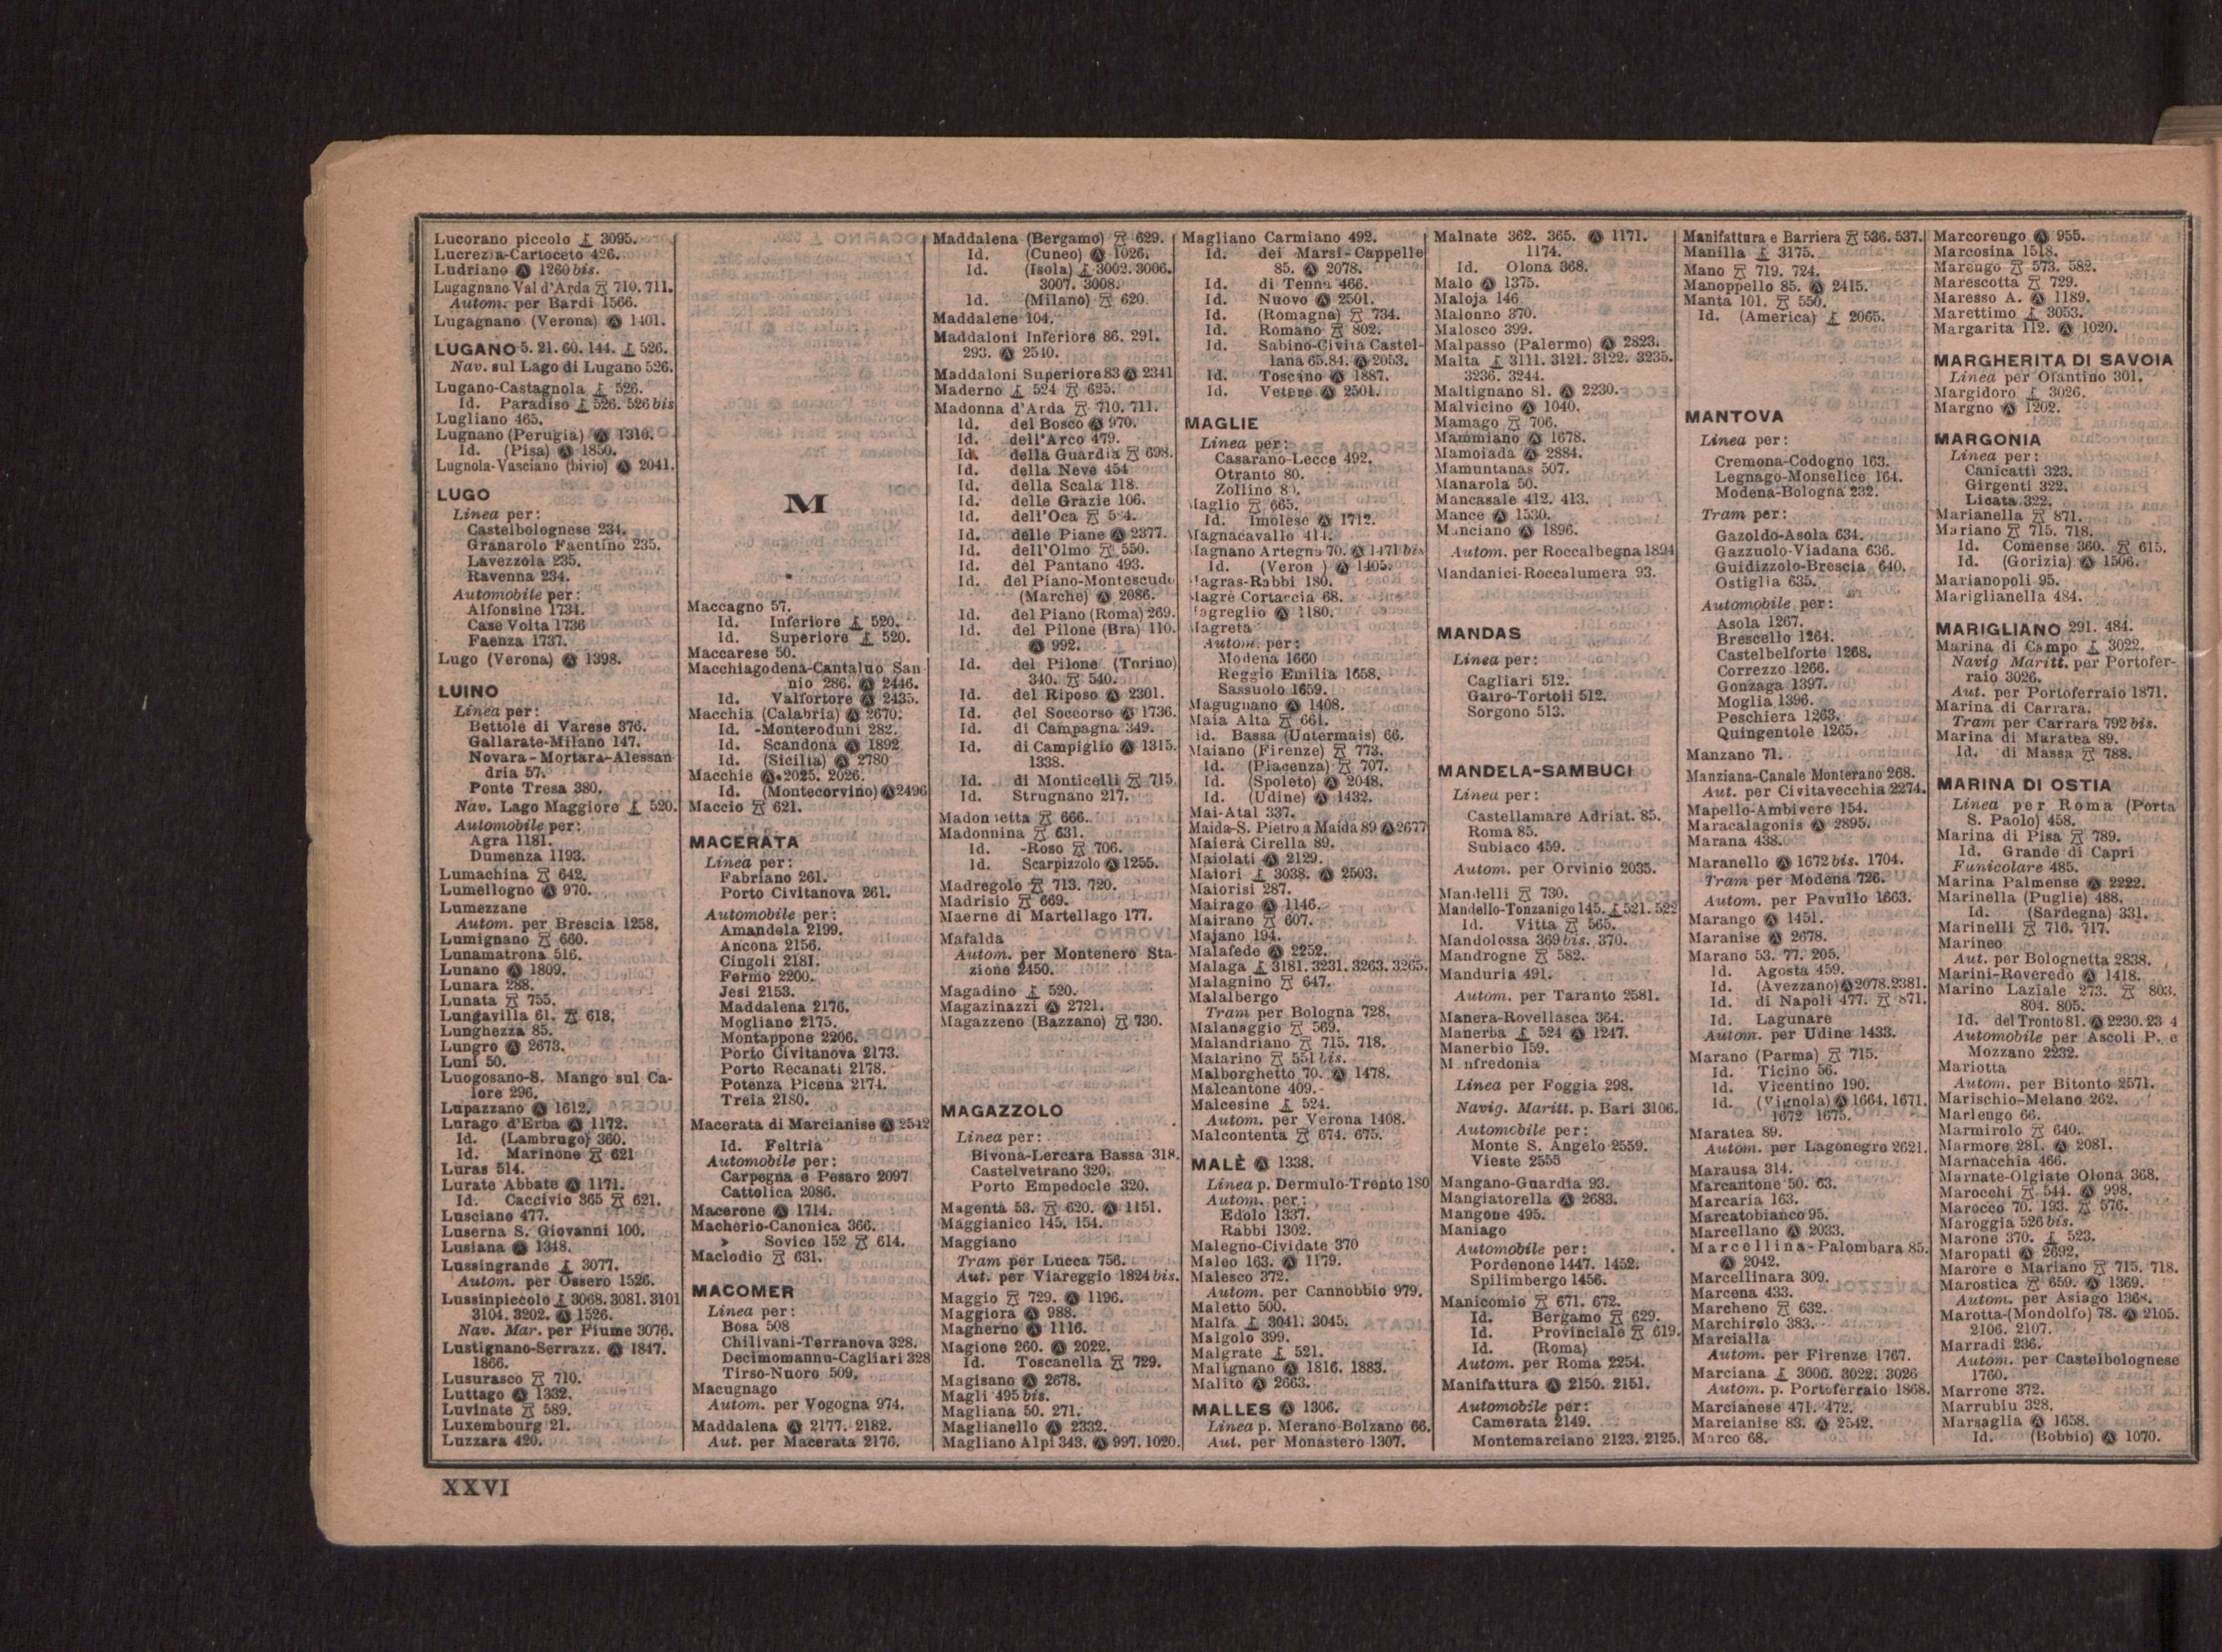 Lucorano piccolo 3095.
Lucrezia-Cartoceto 426.
Ludriano Ⓐ 1260 bis.
Lugagnano Val d'Arda 710. 711.
Autom. per Bardi 1566.
Lugagnano (Verona) Ⓐ 1401.
LUGANO 5. 21. 60. 144. 526.
Nav. sul Lago di Lugano 526.
Lugano-Castagnola 526.
Id. Paradiso 526. 526 bis
Lugliano 465.
Lugnano (Perugia) Ⓐ 1310.
Id. (Pisa) Ⓐ 1850.
Lugnola-Vasciano (bivio) Ⓐ 2041.
LUGO
Linea per:
Castelbolognese 234.
Granarolo Faentino 235.
Lavezzola 235.
Ravenna 234.
Automobile per:
Alfonsine 1734.
Case Volta 1736
Faenza 1737.
Lugo (Verona) Ⓐ 1398.
LUINO
Linea per:
Bettole di Varese 376.
Gallarate-Milano 147.
Novara-Mortara-Alessan
dria 57.
Ponte Tresa 380.
Nav. Lago Maggiore 520.
Automobile per:
Agra 1181.
Dumenza 1193.
Lumachina 642.
Lumellogno Ⓐ 970.
Lumezzane
Autom. per Brescia 1258.
Lumignano 660.
Lunamatrona 516.
Lunano Ⓐ 1809.
Lunara 288.
Lunata 755.
Lungavilla 61. 618.
Lunghezza 85.
Lungro Ⓐ 2673.
Luni 50.
Luogosano-S. Mango sul Ca-
lore 296.
Lupazzano Ⓐ 1612.
Lurago d'Erba Ⓐ 1172.
Id. (Lambrugo) 360.
Id. Marinone 621
Luras 514.
Lurate Abbate Ⓐ 1171.
Id. Caccivio 365 621.
Lusciano 477.
Luserna S. Giovanni 100.
Lusiana Ⓐ 1348.
Lussingrande 3077.
Autom. per Ossero 1526.
Lussinpiccolo 3068. 3081. 3101
3104. 3202. Ⓐ 1526.
Nav. Mar. per Fiume 3076.
Lustignano-Serrazz. Ⓐ 1847.
1866.
Lusurasco 710.
Luttago Ⓐ 1332.
Luvinate 589.
Luxembourg 21.
Luzzara 420.
M
Maccagno 57.
Id. Inferiore 520.
Id. Superiore 520.
Maccarese 50.
Macchiagodena-Cantalupo San
nio 286. Ⓐ 2446.
Id. Valfortore Ⓐ 2435.
Macchia (Calabria) Ⓐ 2670.
Id. -Monteroduni 282.
Id. Scandona Ⓐ 1892
Id. (Sicilia) Ⓐ 2780
Macchie Ⓐ 2025. 2026.
Id. (Montecorvino) Ⓐ 2496
Maccio 621.
MACERATA
Linea per:
Fabriano 261.
Porto Civitanova 261.
Automobile per:
Amandola 2199.
Ancona 2156.
Cingoli 2181.
Fermo 2200.
Jesi 2153.
Maddalena 2176.
Mogliano 2175.
Montappone 2206.
Porto Civitanova 2173.
Porto Recanati 2178.
Potenza Picena 2174.
Treia 2180.
Macerata di Marcianise Ⓐ 2542
Id. Feltria
Automobile per:
Carpegna e Pesaro 2097
Cattolica 2086.
Macerone Ⓐ 1714.
Macherio-Canonica 366.
» Sovico 152 614.
Maclodio 631.
MACOMER
Linea per:
Bosa 508
Chilivani-Terranova 328.
Decimomannu-Cagliari 328
Tirso-Nuoro 509.
Macugnago
Autom. per Vogogna 974.
Maddalena Ⓐ 2177. 2182.
Aut. per Macerata 2176.
Maddalena (Bergamo) 629.
Id. (Cuneo) Ⓐ 1026.
Id. (Isola) 3002. 3006.
3007. 3008.
Id. (Milano) 620.
Maddalene 104.
Maddaloni Inferiore 86. 291.
293. Ⓐ 2540.
Maddaloni Superiore 83 Ⓐ 2341
Maderno 524 625.
Madonna d'Arda 710. 711.
Id. del Bosco Ⓐ 970.
Id. dell'Arco 479.
Id. della Guardia 698.
Id. della Neve 454
Id. della Scala 118.
Id. delle Grazie 106.
Id. dell'Oca
Id. delle Piane Ⓐ 2377.
Id. dell'Olmo 550.
Id. del Pantano 493.
Id. del Piano-Montescudo
(Marche) Ⓐ 2086.
Id. del Piano (Roma) 269.
Id. del Pilone (Bra) 110.
Ⓐ 992.
Id. del Pilone (Torino)
340. 540.
Id. del Riposo Ⓐ 2301.
Id. del Soccorso Ⓐ 1736.
Id. di Campagna 349.
Id. di Campiglio Ⓐ 1315.
1338.
Id. di Monticelli 715.
Id. Strugnano 217.
Madonnetta 666.
Madonnina 631.
Id. -Roso 706.
Id. Scarpizzolo Ⓐ 1255.
Madregolo 713. 720.
Madrisio 669.
Maerne di Martellago 177.
Mafalda
Autom. per Montenero Sta-
zione 2450.
Magadino 520.
Magazinazzi Ⓐ 2721.
Magazzeno (Bazzano) 730.
MAGAZZOLO
Linea per:
Bivona-Lercara Bassa 318.
Castelvetrano 320.
Porto Empedocle 320.
Magenta 53. 620. Ⓐ 1151.
Maggianico 145. 154.
Maggiano
Tram per Lucca 756.
Aut. per Viareggio 1824 bis.
Maggio 729. Ⓐ 1196.
Maggiora Ⓐ 988.
Magherno Ⓐ 1116.
Magione 260. Ⓐ 2022.
Id. Toscanella 729.
Magisano Ⓐ 2678.
Magli 495 bis.
Magliana 50. 271.
Maglianello Ⓐ 2332.
Magliano Alpi 343. Ⓐ 997. 1020.
Magliano Carmiano 492.
Id. dei Marsi-Cappelle
85. Ⓐ 2078.
Id. di Tenna 466.
Id. Nuovo Ⓐ 2501.
Id. (Romagna) 734.
Id. Romano 802.
Id. Sabino-Civita Castel-
lana 65. 84. Ⓐ 2053.
Id. Toscano Ⓐ 1887.
Id. Vetere Ⓐ 2501.
MAGLIE
Linea per:
Casarano-Lecce 492.
Otranto 80.
Zollino
Maglio 665.
Id. Imolese Ⓐ 1712.
Magnacavallo 414.
Magnano Artegna 70. Ⓐ 1471 bis
Id. (Veron ) Ⓐ 1405.
Magras-Rabbi 180.
Magrè Cortaccia 68.
Magreglio Ⓐ 1180.
Magreta
Autom. per:
Modena 1660
Reggio Emilia 1658.
Sassuolo 1659.
Magugnano Ⓐ 1408.
Maia Alta 661.
id. Bassa (Untermais) 66.
Maiano (Firenze) 773.
Id. (Piacenza) 707.
Id. (Spoleto) Ⓐ 2048.
Id. (Udine) Ⓐ 1432.
Mai-Atal 337.
Maida-S. Pietro a Maida 89 Ⓐ 2677
Maierà Cirella 89.
Maiolati Ⓐ 2129.
Maiori 3038. Ⓐ 2503.
Maiorisi 287.
Mairago Ⓐ 1146.
Mairano 607.
Majano 194.
Malafede Ⓐ 2252.
Malaga 3181. 3231. 3263. 3265.
Malagnino 647.
Malalbergo
Tram per Bologna 728.
Malanaggio 569.
Malandriano 715. 718.
Malarino 551 bis.
Malborghetto 70. Ⓐ 1478.
Malcantone 409.
Malcesine 524.
Autom. per Verona 1408.
Malcontenta 674. 675.
MALÈ Ⓐ 1338.
Linea p. Dermulo-Trento 180
Autom. per:
Edolo 1337.
Rabbi 1302.
Malegno-Cividate 370
Maleo 163. Ⓐ 1179.
Malesco 372.
Autom. per Cannobbio 979.
Maletto 500.
Malfa 3041. 3045.
Malgolo 399.
Malgrate 521.
Malignano Ⓐ 1816. 1883.
Malito Ⓐ 2663.
MALLES Ⓐ 1306.
Linea p. Merano-Bolzano 66.
Aut. per Monastero 1307.
Malnate 362. 365. Ⓐ 1171.
1174.
Id. Olona 368.
Malo Ⓐ 1375.
Maloja 146
Malonno 370.
Malosco 399.
Malpasso (Palermo) Ⓐ 2823.
Malta 3111. 3121. 3122. 3235.
3236. 3244.
Maltignano 81. Ⓐ 2230.
Malvicino Ⓐ 1040.
Mamago 706.
Mammiano Ⓐ 1678.
Mamoiada Ⓐ 2884.
Mamuntanas 507.
Manarola 50.
Mancasale 412. 413.
Mance Ⓐ 1530.
Manciano Ⓐ 1896.
Autom. per Roccalbegna 1894
Mandanici-Roccalumera 93.
MANDAS
Linea per:
Cagliari 512.
Gairo-Tortolì 512.
Sorgono 513.
MANDELA-SAMBUCI
Linea per:
Castellamare Adriat. 85.
Roma 85.
Subiaco 459.
Autom. per Orvinio 2035.
Mandelli 730.
Mandello-Tonzanigo 145. 521. 522
Id. Vitta 565.
Mandolossa 369 bis. 370.
Mandrogne 582.
Manduria 491.
Autom. per Taranto 2581.
Manera-Rovellasca 364.
Manerba 524 Ⓐ 1247.
Manerbio 159.
M nfredonia
Linea per Foggia 298.
Navig. Maritt. p. Bari 3106.
Automobile per:
Monte S. Angelo 2559.
Vieste 2555
Mangano-Guardia 93.
Mangiatorella Ⓐ 2683.
Mangone 495.
Maniago
Automobile per:
Pordenone 1447. 1452.
Spilimbergo 1456.
Manicomio 671. 672.
Id. Bergamo 629.
Id. Provinciale 619.
Id. (Roma)
Autom. per Roma 2254.
Manifattura Ⓐ 2150. 2151.
Automobile per:
Camerata 2149.
Montemarciano 2123. 2125.
Manifattura e Barriera 536. 537.
Manilla 3175.
Mano 719. 724.
Manoppello 85. Ⓐ 2415.
Manta 101. 550.
Id. (America) 2065.
MANTOVA
Linea per:
Cremona-Codogno 163.
Legnago-Monselice 164.
Modena-Bologna 232.
Tram per:
Gazoldo-Asola 634.
Gazzuolo-Viadana 636.
Guidizzolo-Brescia 640.
Ostiglia 635.
Automobile per:
Asola 1267.
Brescello 1264.
Castelbelforte 1268.
Correzzo 1266.
Gonzaga 1397.
Moglia 1396.
Peschiera 1263.
Quingentole 1265.
Manzano 71.
Manziana-Canale Monterano 268.
Aut. per Civitavecchia 2274.
Mapello-Ambivere 154.
Maracalagonis Ⓐ 2895.
Marana 438.
Maranello Ⓐ 1672 bis. 1704.
Tram per Modena 726.
Autom. per Pavullo 1663.
Marango Ⓐ 1451.
Maranise Ⓐ 2678.
Marano 53. 77. 205.
Id. Agosta 459.
Id. (Avezzano) Ⓐ 2078. 2381.
Id. di Napoli 477. 871.
Id. Lagunare
Autom. per Udine 1433.
Marano (Parma) 715.
Id. Ticino 56.
Id. Vicentino 190.
Id. (Vignola) Ⓐ 1664. 1671.
1672 1675.
Maratea 89.
Autom. per Lagonegro 2621.
Marausa 314.
Marcantone 50. 63.
Marcaria 163.
Marcatobianco 95.
Marcellano Ⓐ 2033.
Marcellina-Palombara 85.
Ⓐ 2042.
Marcellinara 309.
Marcena 433.
Marcheno 632.
Marchirolo 383.
Marcialla
Autom. per Firenze 1767.
Marciana 3006. 3022. 3026
Autom. p. Portoferraio 1868.
Marcianese 471. 472.
Marcianise 83. Ⓐ 2542.
Marco 68.
Marcorengo Ⓐ 955.
Marcosina 1518.
Marengo 573. 582.
Marescotta 729.
Maresso A. Ⓐ 1189.
Marettimo 3053.
Margarita 112. Ⓐ 1020.
MARGHERITA DI SAVOIA
Linea per Ofantino 301.
Margidoro 3026.
Margno Ⓐ 1202.
MARGONIA
Linea per:
Canicatti 323.
Girgenti 322.
Licata 322.
Marianella 871.
Mariano 715. 718.
Id. Comense 360. 615.
Id. (Gorizia) Ⓐ 1506.
Marianopoli 95.
Mariglianella 484.
MARIGLIANO 291. 484.
Marina di Campo 3022.
Navig Maritt. per Portofer-
raio 3026.
Aut. per Portoferraio 1871.
Marina di Carrara.
Tram per Carrara 792 bis.
Marina di Maratea 89.
Id. di Massa 788.
MARINA DI OSTIA
Linea per Roma (Porta
S. Paolo) 458.
Marina di Pisa 789.
Id. Grande di Capri
Funicolare 485.
Marina Palmense Ⓐ 2222.
Marinella (Puglie) 488.
Id. (Sardegna) 331.
Marinelli 716. 717.
Marineo
Aut. per Bolognetta 2838.
Marini-Roveredo Ⓐ 1418.
Marino Laziale 273. 803.
804. 805.
Id. del Tronto 81. Ⓐ 2230. 23 4
Automobile per Ascoli P. e
Mozzano 2232.
Mariotta
Autom. per Bitonto 2571.
Marischio-Melano 262.
Marlengo 66.
Marmirolo 640.
Marmore 281. Ⓐ 2081.
Marnacchia 466.
Marnate-Olgiate Olona 368.
Marocchi 544. Ⓐ 998.
Marocco 70. 193. 576.
Maroggia 526 bis.
Marone 370. 523.
Maropati Ⓐ 2692.
Marore e Mariano 715. 718.
Marostica 659. Ⓐ 1369.
Autom. per Asiago 1368.
Marotta-(Mondolfo) 78. Ⓐ 2105.
2106. 2107.
Marradi 236.
Autom. per Castelbolognese
1760.
Marrone 372.
Marrubiu 328.
Marsaglia Ⓐ 1658.
Id. (Bobbio) Ⓐ 1070.
XXVI